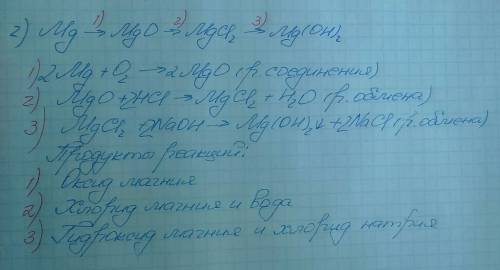 2) Mg →1) MgO →2) MgCl₂ →3) Mg(OH)₂
1) 2Mg + O₂ → 2MgO (р. соединения)
2) MgO + 2HCl → MgCl₂ + H₂O (р. обмена)
3) MgCl₂ + 2NaOH → Mg(OH)₂↓ + 2NaCl (р. обмена)
Продукты реакций:
1) Оксид магния
2) Хлорид магния и вода
3) Гидроксид магния и хлорид натрия